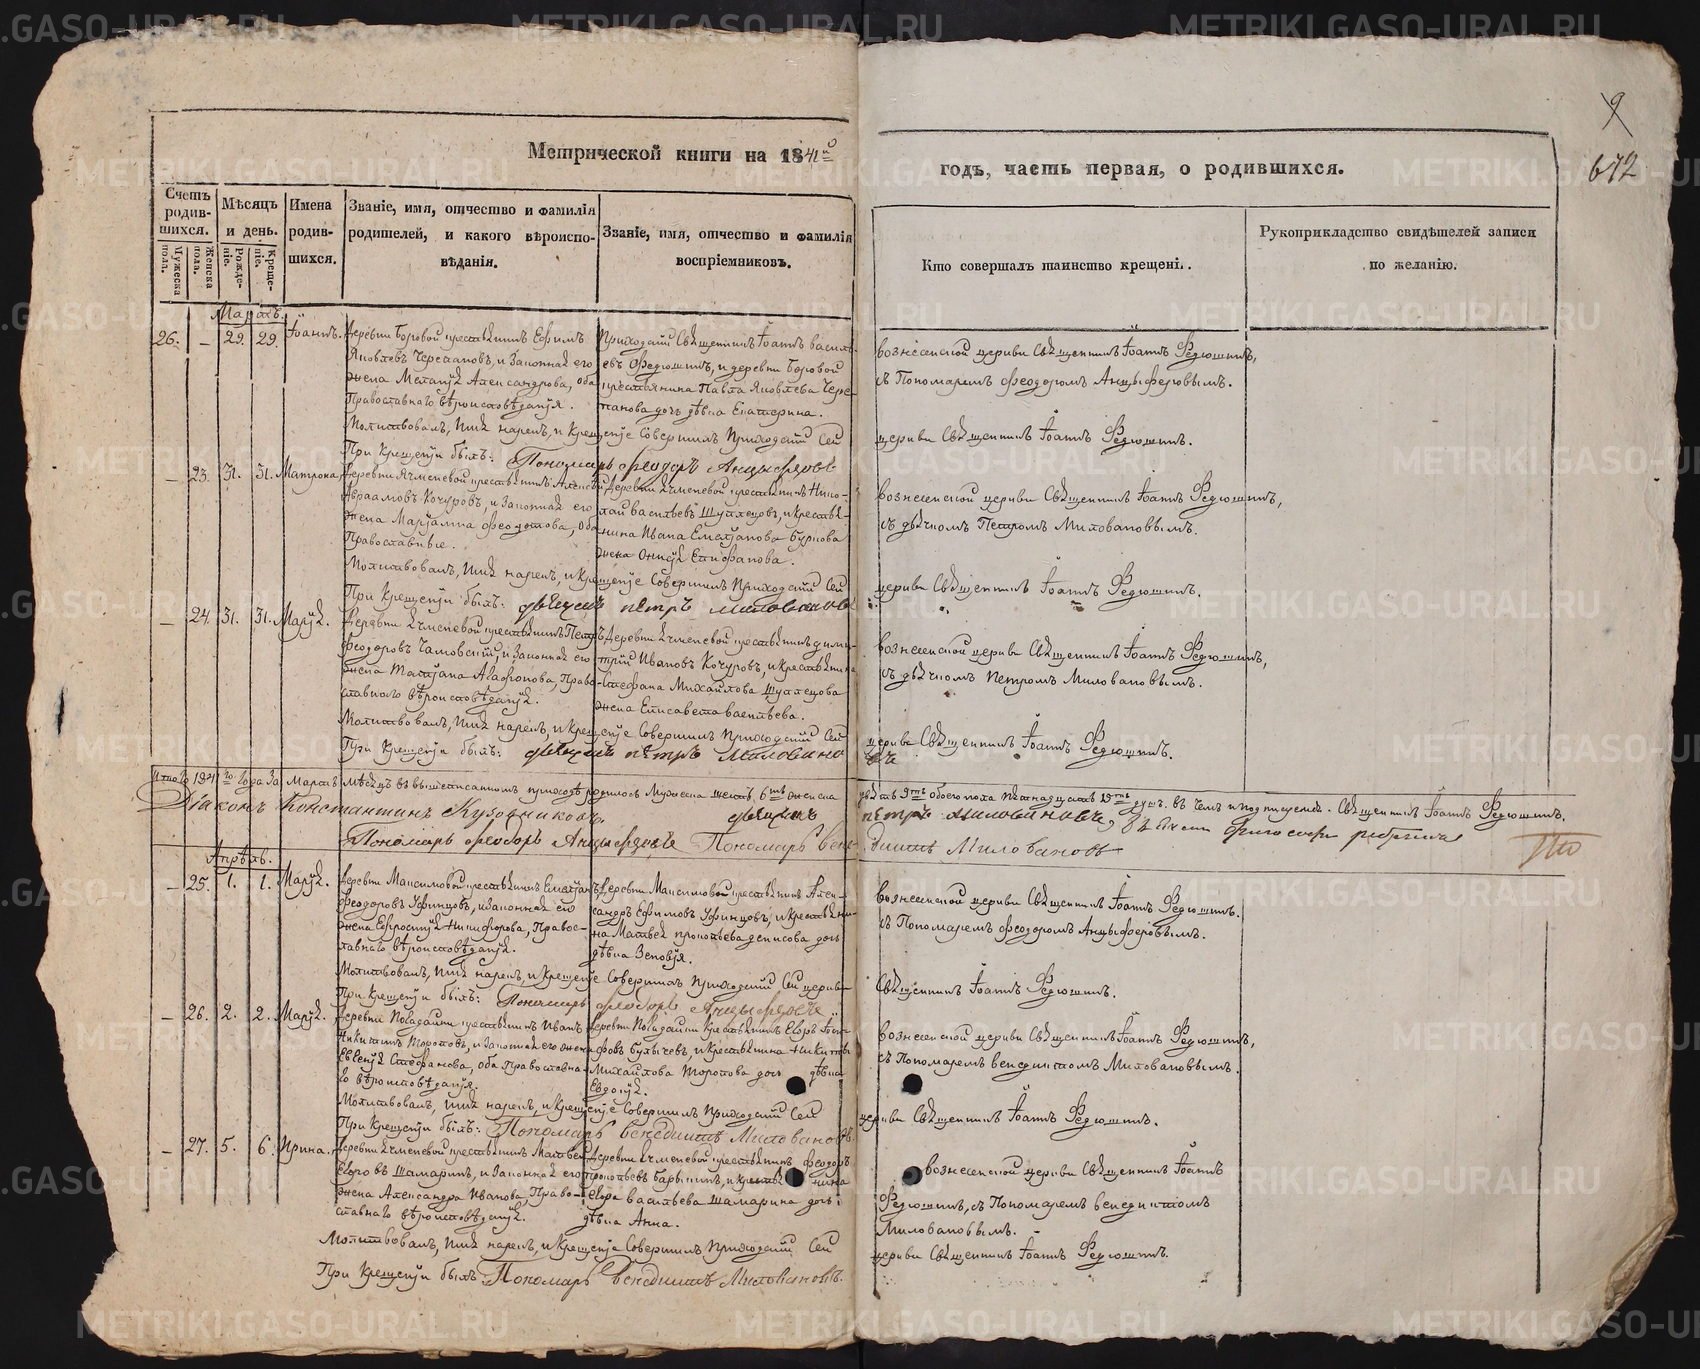 Метрической книги на 1841й
годъ, часть первая, о родившихся.
672
Счетъ родившихся.
Мужеска пола.
Женска пола.
Мѣсяцъ и день.
Рожденіе.
Крещеніе.
Имена родившихся.
Званіе, имя, отчество и фамилія родителей, и какого вѣроисповѣданія.
Званіе, имя, отчество и фамилія воспріемниковъ.
Кто совершалъ таинство крещені..
Рукоприкладство свидѣтелей записи по желанію.
Мартъ.
26. – 29. 29. Іоаннъ.
Деревни Боровой крестьянинъ Ефимъ
Яковлевъ Черепановъ, и законная его
жена Александрова, оба
Православнаго вѣроисповѣданія.
Приходскій Священникъ Іоаннъ Василь-
евъ Федюшинъ, и деревни Боровой
крестьянина Павла Яковлева Чере-
панова дочь дѣвка Екатерина.
Вознесенской церкви Священникъ Іоаннъ Федюшинъ,
съ Пономаремъ Феодоромъ Анцыферовымъ.
Молитвовалъ, имя нарекъ, и крещеніе совершилъ приходской сей
церкви Священникъ Іоаннъ Федюшинъ.
При крещеніи былъ: Пономарь Феодоръ Анцыферовъ
– 23. 31. 31. Матрона
Деревни Ячменевой крестьянинъ Алексѣй
Авраамовъ Кочуровъ, и законная его
жена Маріамна Феодотова, оба
Православные.
Деревни Ячменевой крестьянинъ Нико-
лай Васильевъ Шуплецовъ, и крестья-
нина Ивана Емельянова Буркова
жена Епифанова.
Вознесенской церкви Священникъ Іоаннъ Федюшинъ,
съ дьячкомъ Петромъ Миловановымъ.
Молитвовалъ, имя нарекъ, и крещеніе совершилъ приходской сей
церкви Священникъ Іоаннъ Федюшинъ.
При крещеніи былъ: дьячекъ Петръ Миловановъ
– 24. 31. 31. Марія.
Деревни Ячменевой крестьянинъ Петръ
Феодоровъ и законная его
жена Татьяна Агафонова, Право-
славнаго вѣроисповѣданія.
Деревни Ячменевой крестьянинъ Дими-
трій Ивановъ Кочуровъ, и крестьянина
Стефана Михайлова Шуплецова
жена Елисавета Васильева.
Вознесенской церкви Священникъ Іоаннъ Федюшинъ,
съ дьячкомъ Петромъ Миловановымъ.
Молитвовалъ, имя нарекъ, и крещеніе совершилъ приходской сей
церкви Священникъ Іоаннъ Федюшинъ.
При крещеніи былъ: дьячекъ Петръ Миловановъ
Итого 1841го года за Мартъ мѣсяцъ въ вышеписанномъ приходѣ родилось Мужеска шесть 6ть женска
девять 9ть обоего пола пятнадцать 15ть душъ. въ чемъ и подписуемся. Священникъ Іоаннъ Федюшинъ.
Діаконъ Константинъ Кузовниковъ. дьячекъ Петръ Миловановъ,
Пономарь Феодоръ Анцыферовъ Пономарь Венедиктъ Миловановъ
Апрѣль.
– 25. 1. 1. Марія.
Деревни Максимовой крестьянинъ Емельянъ
Феодоровъ Уфинцовъ, и законная его
жена Евфросинія Никифорова, Правос-
лавнаго вѣроисповѣданія.
Деревни Максимовой крестьянинъ Алек-
сандръ Ефимовъ Уфинцовъ, и крестьяни-
на Матвея Прокопьева Денисова дочь
дѣвка Зеновія.
Вознесенской церкви Священникъ Іоаннъ Федюшинъ.
съ Пономаремъ Феодоромъ Анцыферовымъ.
Молитвовалъ, имя нарекъ, и крещеніе совершилъ приходской сей церкви
Священникъ Іоаннъ Федюшинъ.
При крещеніи былъ: Пономарь Феодоръ Анцыферовъ
– 26. 2. 2. Марія.
Деревни крестьянинъ Иванъ
Никитинъ Тороповъ, и законная его жена
Евгенія Стефанова, оба Православна-
го вѣроисповѣданія.
Деревни крестьянинъ Егоръ
Булычевъ, и крестьянина Никиты
Михайлова Торопова дочь дѣвка
Евдокія.
Вознесенской церкви Священникъ Іоаннъ Федюшинъ,
съ Пономаремъ Венедиктомъ Миловановымъ.
Молитвовалъ, имя нарекъ, и крещеніе совершилъ приходской сей
церкви Священникъ Іоаннъ Федюшинъ.
При крещеніи былъ: Пономарь Венедиктъ Миловановъ.
– 27. 5. 6. Ирина.
Деревни Ячменевой крестьянинъ Матвей
Егоровъ Шамаринъ, и законная его
жена Александра Иванова, Право-
славнаго вѣроисповѣданія.
Деревни Ячменевой крестьянинъ Феодоръ
Прокопьевъ Барышинъ, и крестьянина
Егора Васильева Шамарина дочь
дѣвка Анна.
Вознесенской церкви Священникъ Іоаннъ
Федюшинъ, съ Пономаремъ Венедиктомъ
Миловановымъ.
Молитвовалъ, имя нарекъ, и крещеніе совершилъ приходской сей
церкви Священникъ Іоаннъ Федюшинъ.
При крещеніи былъ Пономарь Венедиктъ Миловановъ.
METRIKI.GASO-URAL.RU